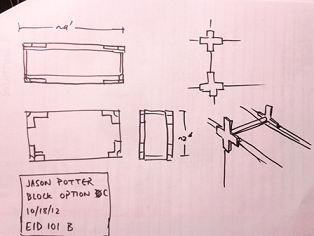 ~4'
~2'
JASON POTTER
BLOCK OPTION C
10/18/12
EID 101 B